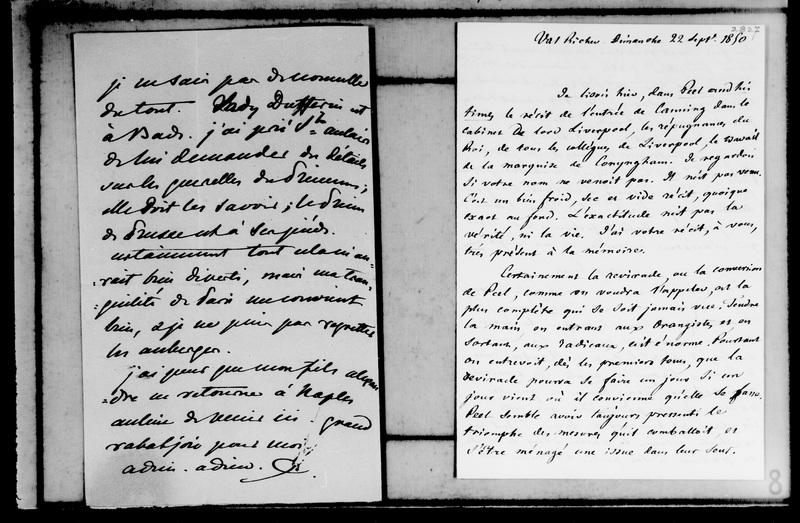 je ne sais pas de nouvelle
du tout. Lady Dufferin est
à Bade. j'ai prié Ste Aulaire
de lui demander des détails
sur les querelles des Princes;
elle doit les savoir; le Prince
de Prusse est à ses pieds.
notamment tout cela m'au-
=rait bien diverti, mais ma tran-
=quillité de Paris me convient
bien, & je ne puis pas regretter
les auberges.
j'ai peur que mon fils alexan
=dre ne retourne à Naples
au lieu de venir ici. grand
rabat joie pour moi.
adieu. adieu.
2827
Val Richer Dimanche 22 Sept. 1850
Je lisais hier, dans Peel and his
times le récit de l'entrée de Canning dans le
cabinet de lord Liverpool, les répugnances du
Roi, de tous les collègues de Liverpool, le travail
de la marquise de Conyngham. Je regardois
si votre nom ne venoit pas. Il n'est pas venu.
C'est un bien froid, sec et vide récit, quoique
exact au fond. L'exactitude n'est pas la
vérité, ni la vie. J'ai votre récit, à vous,
très présent à la mémoire.
Certainement la revirade, ou la conversion
de Peel, comme on voudra l'appeler, est la
plus complète qui se soit jamais vue. Tendre
la main en entrant aux Orangistes, et en
sortant, aux radicaux, c'est énorme. Pourtant
on entrevoit, dès les premiers tems, que la
revirade pourra se faire un jour si un
jour vient où il convienne qu'elle se fasse.
Peel semble avoir toujours pressenti le
triomphe des mesures qu'il combattoit et
s'être ménagé une issue dans leur sens.
8